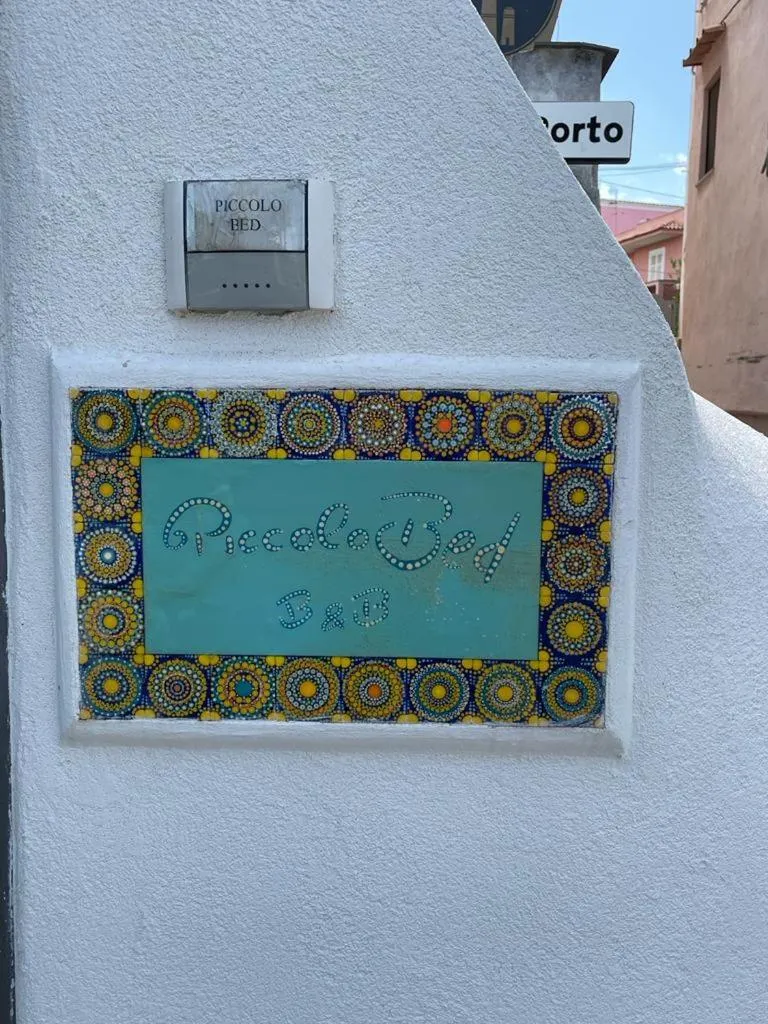 orto
PICCOLO
BED
Piccolo Bed
B&B